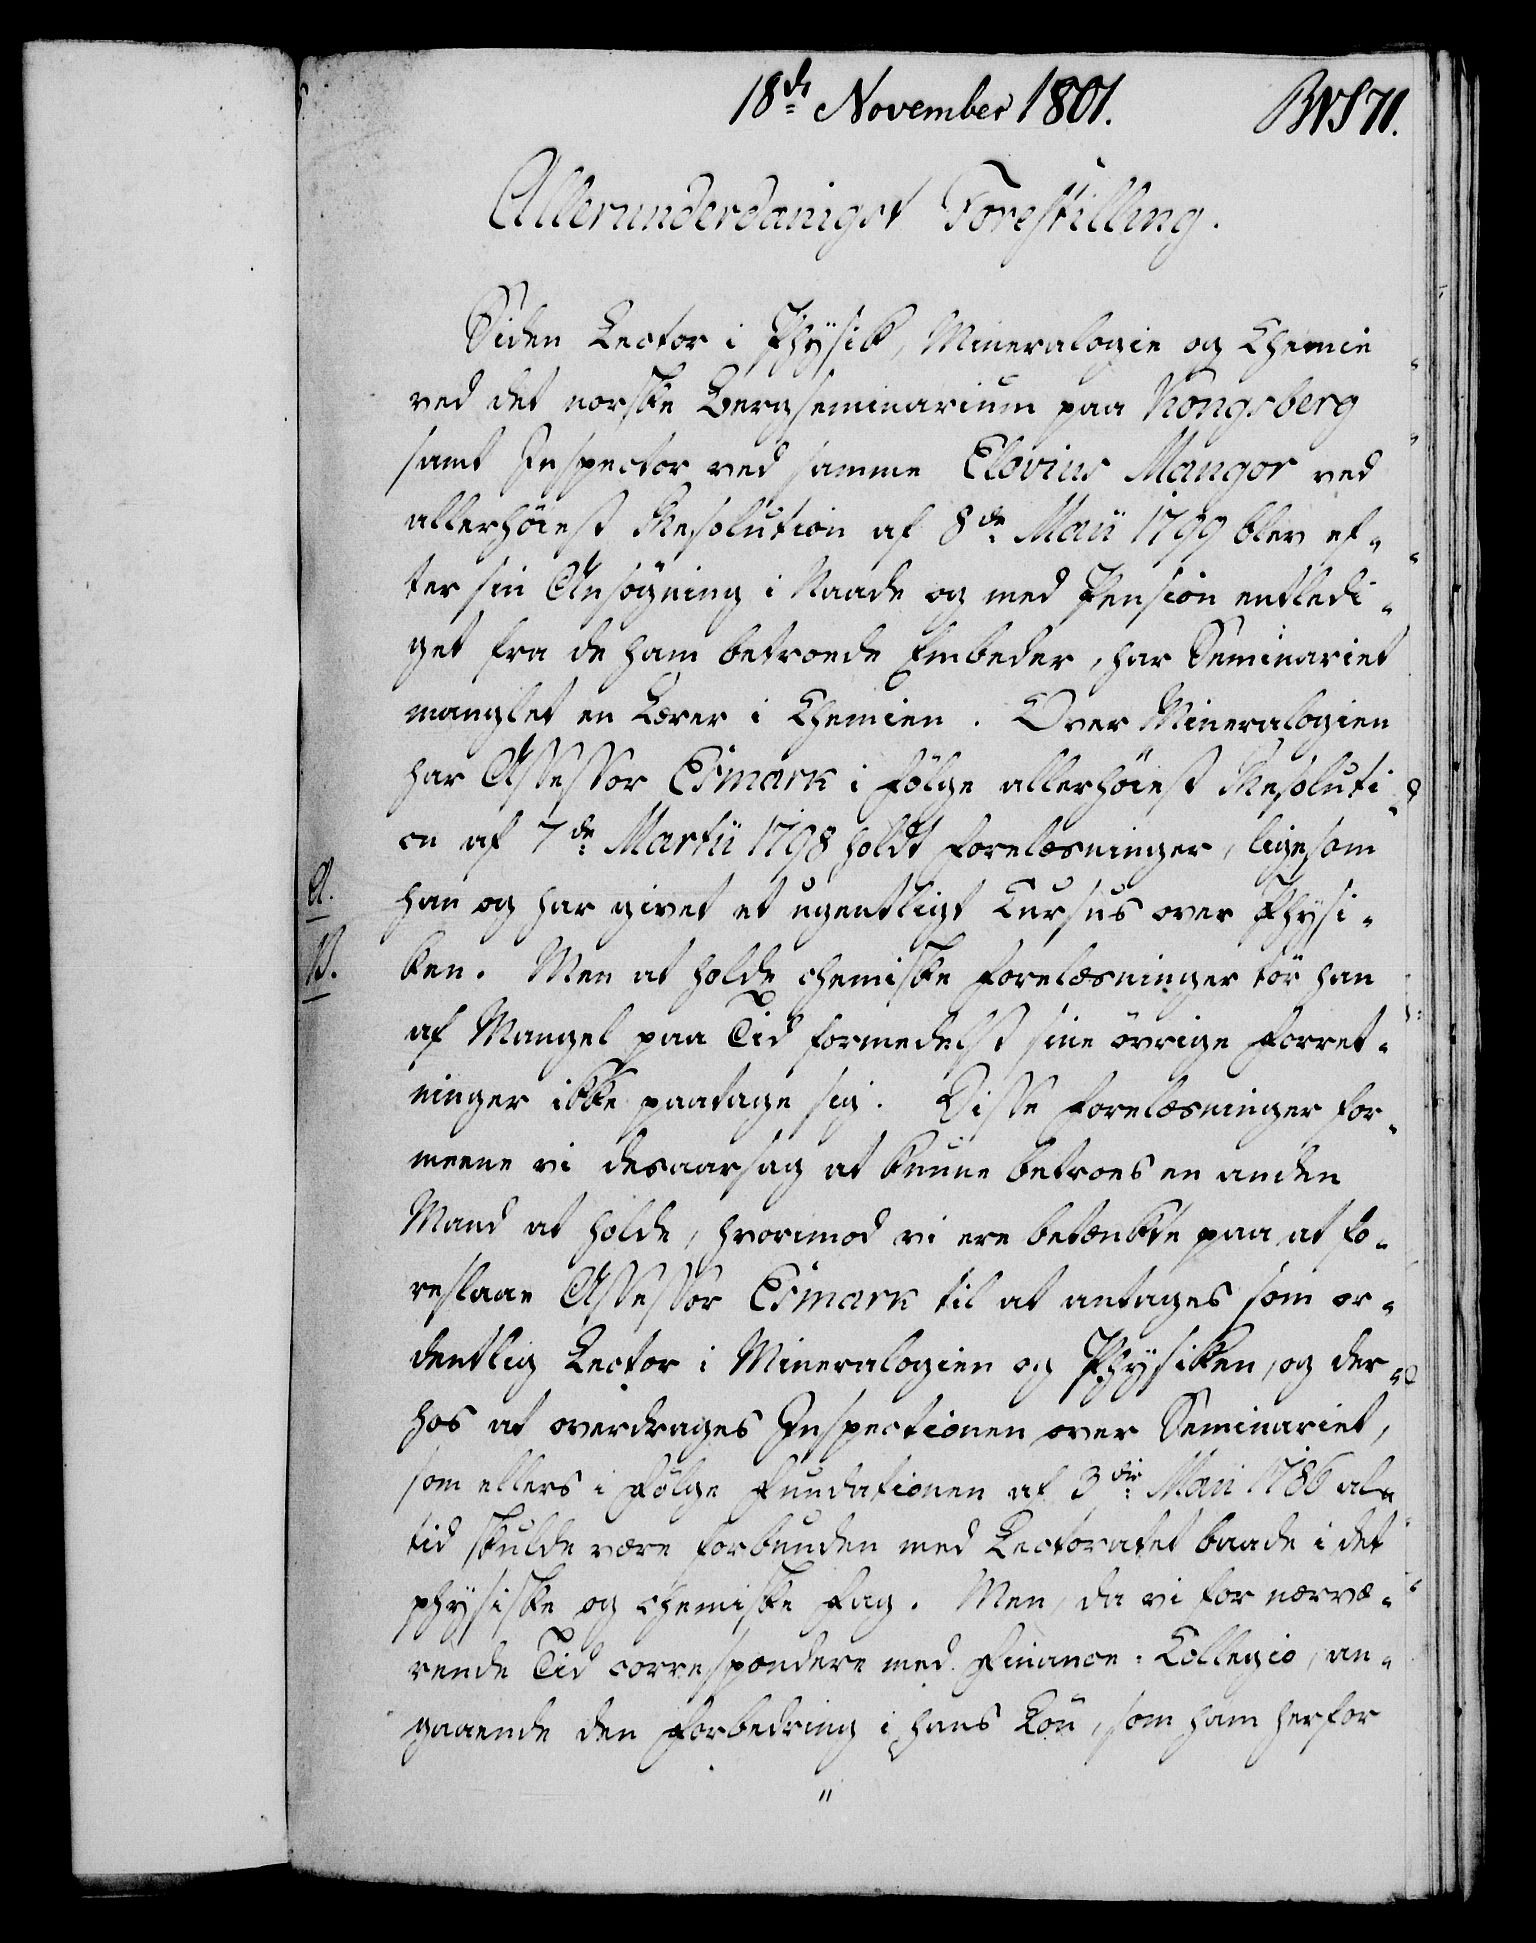 18de November 1801.
Allerunderdanigst Forestilling.
Siden Lector i Physik, Mineralogie og Chemie
ved det norske Bergseminarium paa Kongsberg
samt Inspector ved samme Elovius Mangor ved
allerhöiest Resolution af 8de Maii 1799 blev ef-
ter sin Ansøgning i Naade og med Pension entledi-
get fra de ham betroede Embeder, har Seminariet
manglet en Lærer i Chemien. Over Mineralogien
har Assessor Esmark i Følge allerhöiest Resoluti-
on af 7de Martii 1798 holdt Forelæsninger, ligesom
A. han og har givet et ugentligt Cursus over Physi-
B. ken. Men at holde chemiske Forelæsninger tör han
af Mangel paa Tid formedelst sine övrige Forret-
ninger ikke paatage sig. Disse Forelæsninger for-
meene vi desaarsag at kunne betroes en anden
Mand at holde, hvorimod vi ere betænkte paa at fo-
reslaae Assessor Esmark til at antages som or-
dentlig Lector i Mineralogien og Physiken, og der-
hos at overdrages Inspectionen over Seminariet,
som ellers i Følge Fundationen af 3die Maii 1786 al-
tid skulde være forbunden med Lectoratet baade i det
physiske og chemiske Fag. Men, da vi for nærvæ-
rende Tid correspondere med Finance-Collegio, an-
gaaende den Forbedring i hans Lön, som ham herfor
"